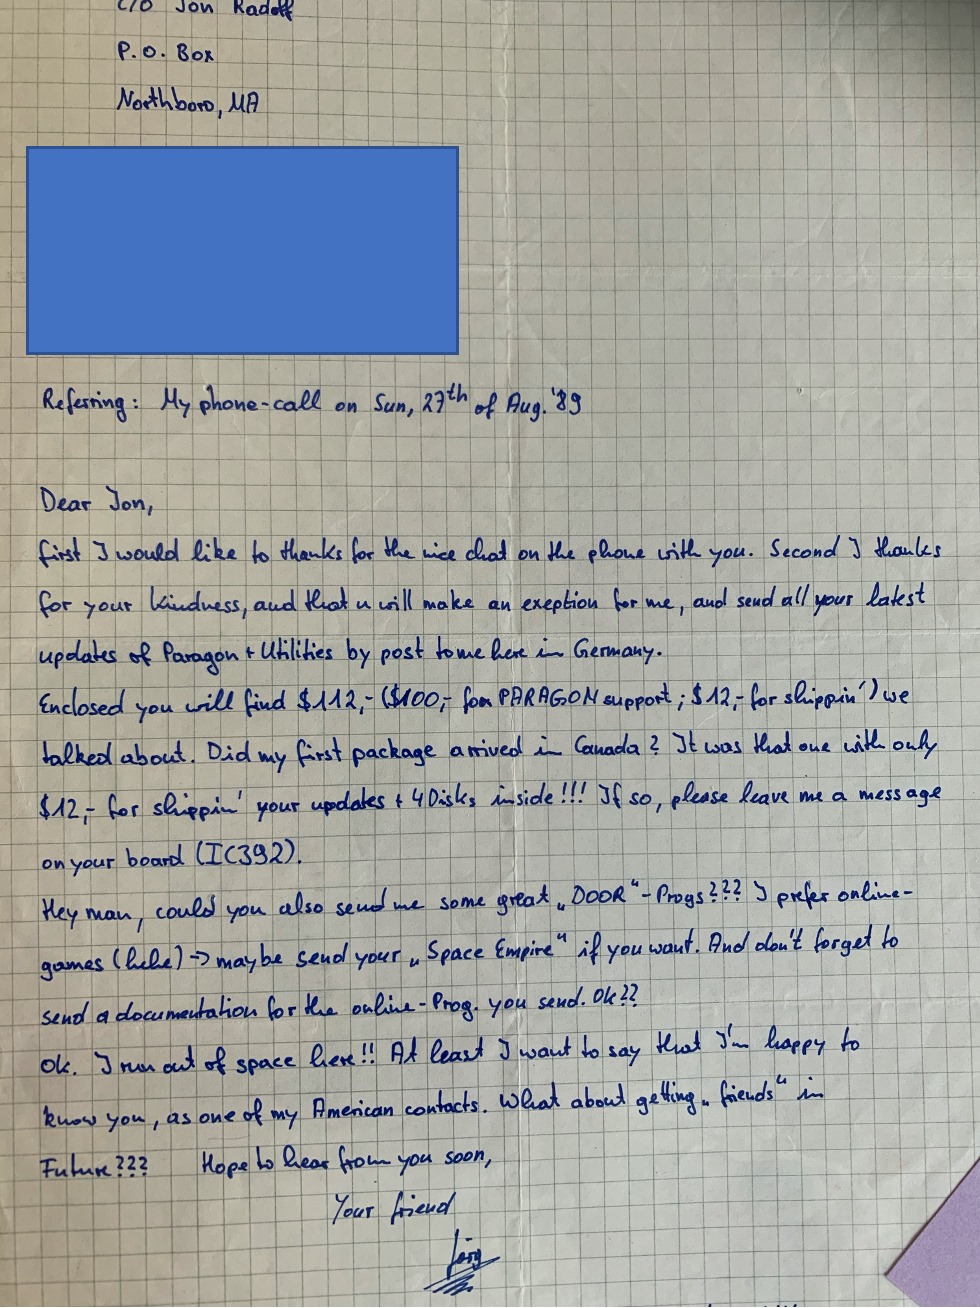 c/o Jon Radoff
P.O. Box
Northboro, MA
Referring: My phone-call on Sun, 27th of Aug. '89
Dear Jon,
first I would like to thanks for the nice chat on the phone with you. Second I thanks
for your kindness, and that u will make an exeption for me, and send all your latest
updates of Paragon + Utilities by post to me here in Germany.
Enclosed you will find $112,- ($100,- for PARAGON support; $12,- for shippin') we
talked about. Did my first package arrived in Canada? It was that one with only
$12,- for shippin' your updates + 4 Disks inside!!! If so, please leave me a message
on your board (IC392).
Hey man, could you also send me some great „DOOR“-Progs??? I prefer online-
games (hehe) -> maybe send your „Space Empire“ if you want. And don't forget to
send a documentation for the online-Prog. you send. Ok??
Ok. I run out of space here!! At least I want to say that I'm happy to
know you, as one of my American contacts. What about getting „friends“ in
Future??? Hope to hear from you soon,
Your friend
Jörg